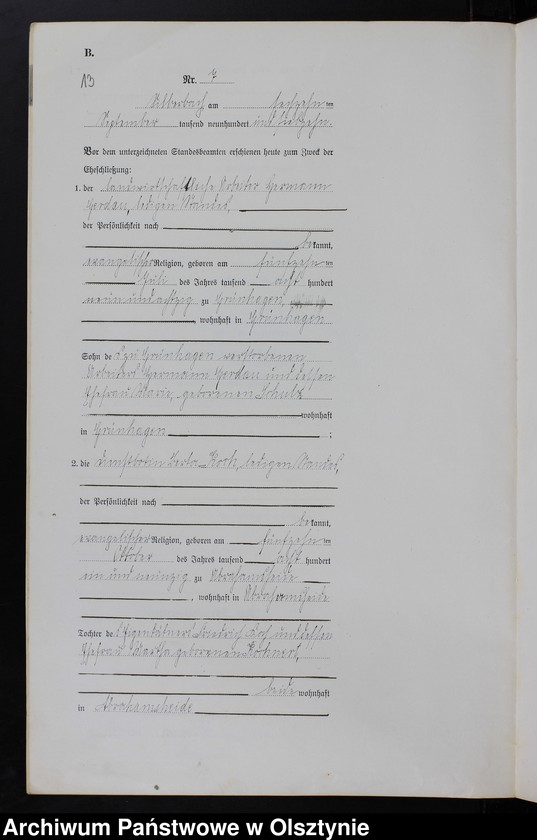 B.
13
Nr. 7
Silberbach am sechzehn ten
September tausend neunhundert und siebzehn.
Vor dem unterzeichneten Standesbeamten erschienen heute zum Zweck der
Eheschließung:
1. der landwirtschaftliche Arbeiter Hermann
Gerdau, ledigen Standes,
der Persönlichkeit nach
bekannt,
evangelischer Religion, geboren am fünfzehn ten
Juli des Jahres tausend acht hundert
neunundachtzig zu Grünhagen,
, wohnhaft in Grünhagen
Sohn des zu Grünhagen verstorbenen
Arbeiters Hermann Gerdau und dessen
Ehefrau Marie, geborenen Schulz
wohnhaft
in Grünhagen ;
2. die Dienstbotin Berta Koch, ledigen Standes,
der Persönlichkeit nach
bekannt,
evangelischer Religion, geboren am fünfzehn ten
Oktober des Jahres tausend acht hundert
einundneunzig zu Abrahamsheide
, wohnhaft in Abrahamsheide
Tochter des Eigenkätners Friedrich Koch und dessen
Ehefrau Martha geborenen
beide wohnhaft
in Abrahamsheide
Archiwum Państwowe w Olsztynie